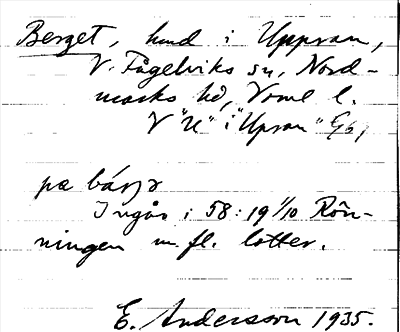 Berget, hmd i Uppsran,
V. Fågelviks sn, Nord-
marks hd, Vrml l.
V "U" i "Upsran" Gbl
pæ bárjə
Ingår i 58: 19 1/10 Rön-
ningen m. fl. lotter.
E. Andersson 1935.